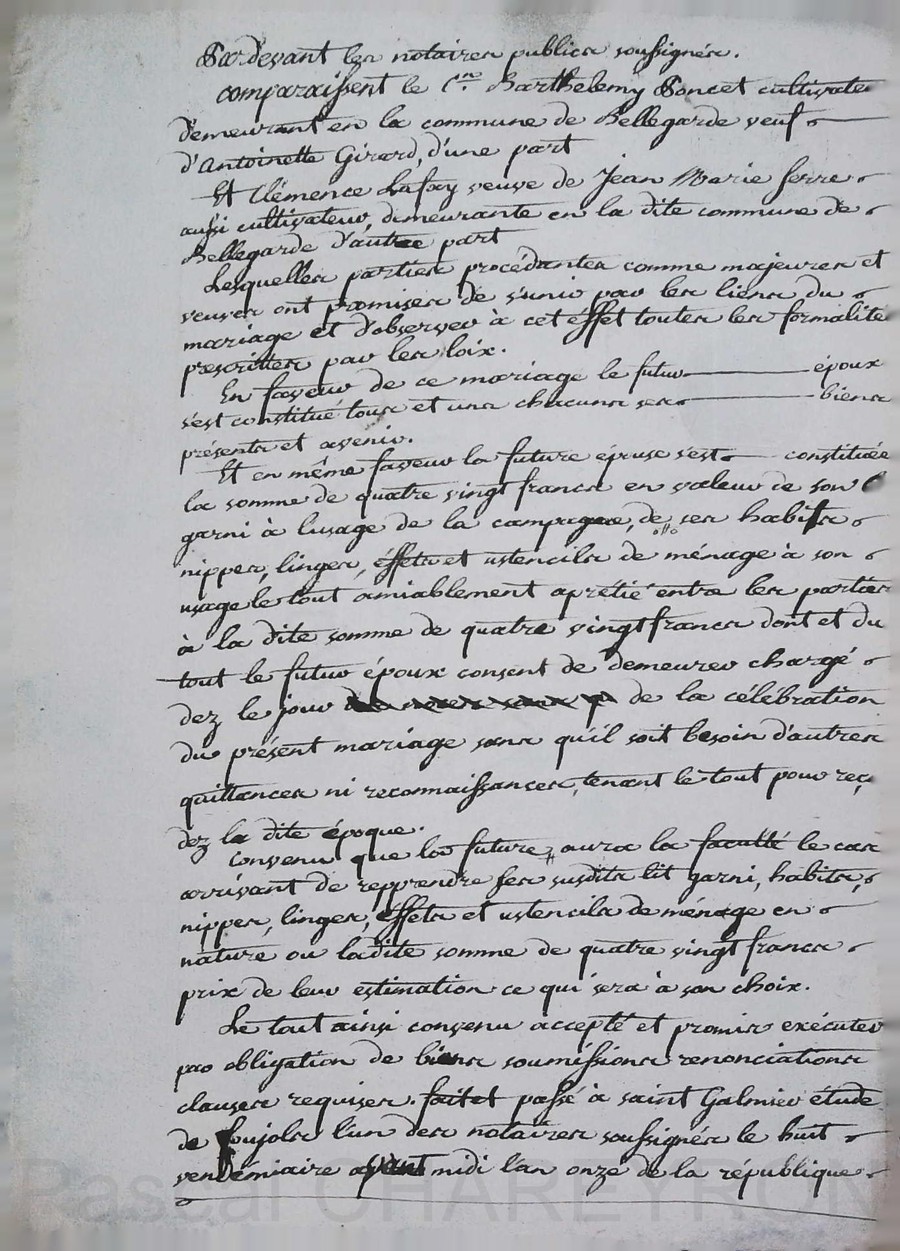 Par devant les notaires publics soussignés.
comparaissent le C.en Barthelemy Poncet cultivate
demeurant en la commune de Bellegarde veuf
d'Antoinette Girard, d'une part
Et Clémence Lafay veuve de Jean Marie ferre
aussi cultivateur, demeurante en la dite commune de
Bellegarde d'autre part
Lesquelles parties procédantes comme majeures et
veuves ont promises de s'unir par les liens du
mariage et d'observer à cet éffet toutes les formalité
prescrittes par les loix.
En faveur de ce mariage le futur époux
s'est constitué tous et uns chacuns ses biens
présents et avenir.
Et en même faveur la future épouse s'est constituée
la somme de quatre vingt francs en valeur de son
garni à lusage de la campagne, de ses habits
nippes, linges, éffets et ustencils de ménage à son
usage le tout amiablement aprétié entre les parties
à la dite somme de quatre vingt francs dont et du
tout le futur époux consent de demeurer chargé
dez le jour de la célébration
du présent mariage sans qu'il soit besoin d'autres
quittances ni reconnaissances, tenant le tout pour reç
dez la dite époque.
Convenu que la future aura la faculté le cas
arrivant de repprendre ses susdits lit garni, habits,
nippes, linges, éffets et ustencils de ménage en
nature ou ladite somme de quatre vingt francs
prix de leur estimation ce qui sera à son choix.
Le tout ainsi convenu accepté et promis exécuter
par obligation de biens soumissions renonciations
clauses requises. fait et passé à saint Galmier étude
de Poujols l'un des notaires soussignés le huit
vendémiaire avant midi l'an onze de la république
Pascal CHAREYRON